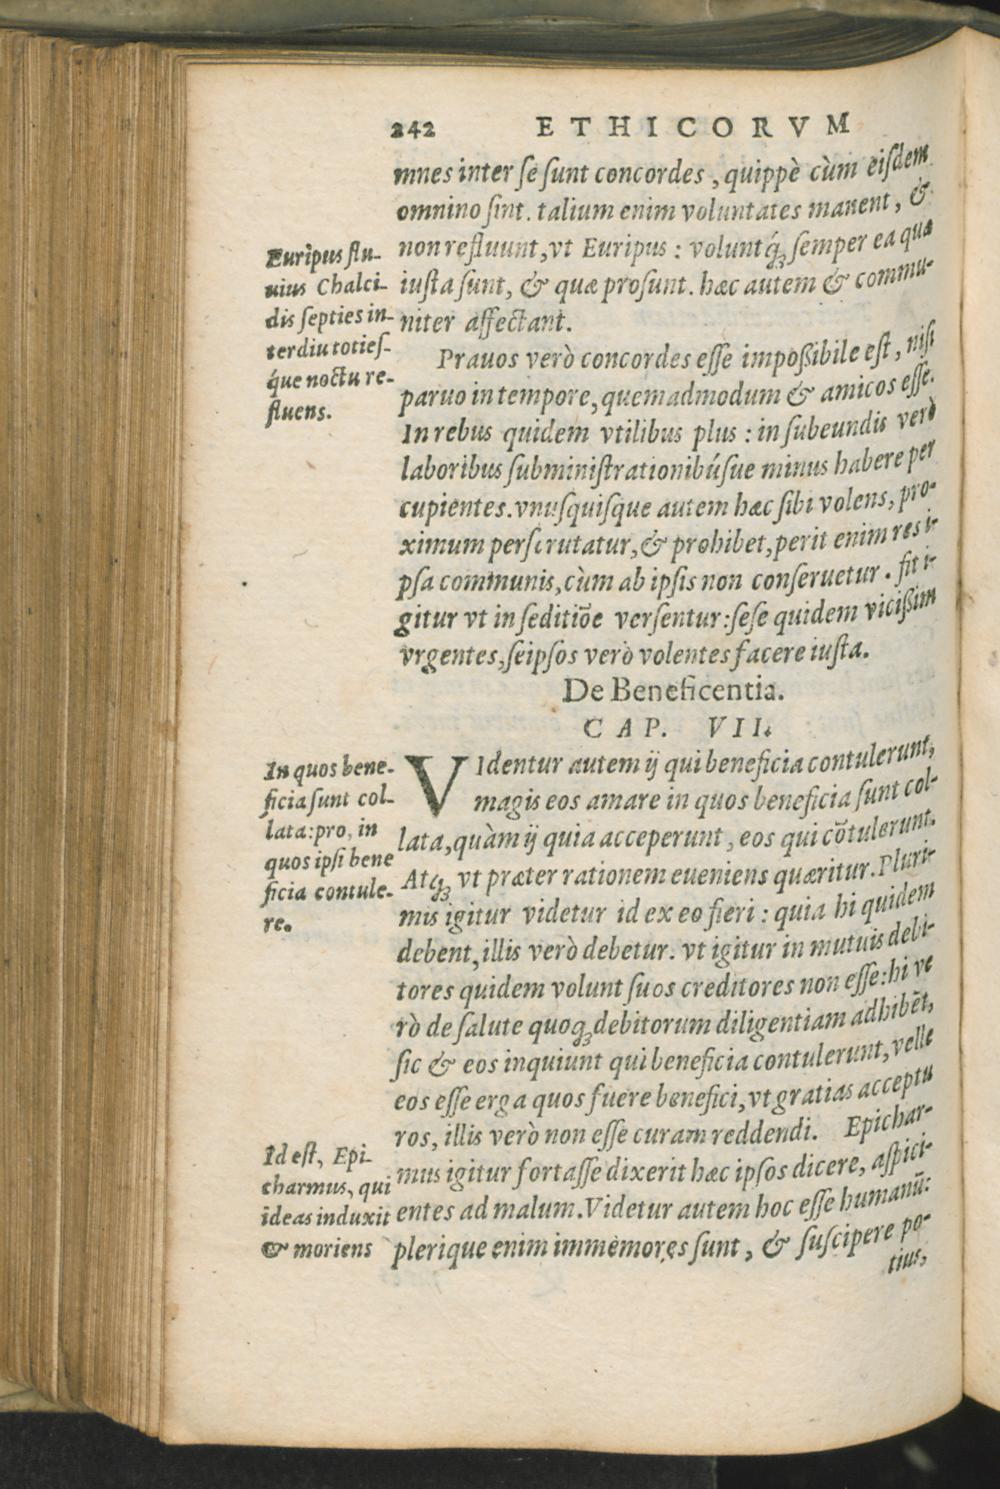 242 ETHICORVM
mnes inter se sunt concordes, quippè cùm eisdem
omnino sint. talium enim voluntates manent, &
non refluunt, vt Euripus: voluntq́; semper ea quæ
iusta sunt, & quæ prosunt. hæc autem & commu-
niter affectant.
Euripus flu-
uius Chalci-
dis septies in-
terdiu toties-
q́ue noctu re-
fluens.
Prauos verò concordes esse impoßibile est, nisi
paruo in tempore, quemadmodum & amicos esse.
In rebus quidem vtilibus plus: in subeundis verò
laboribus subministrationibúsue minus habere per
cupientes. vnusquisque autem hæc sibi volens, pro-
ximum perscrutatur, & prohibet, perit enim res i-
psa communis, cùm ab ipsis non conseruetur. fit i-
gitur vt in seditiõe versentur: sese quidem vicißim
vrgentes, seipsos verò volentes facere iusta.
De Beneficentia.
CAP. VII.
VIdentur autem ij qui beneficia contulerunt,
magis eos amare in quos beneficia sunt col-
lata, quàm ij quia acceperunt, eos qui cõtulerunt.
Atq; vt præter rationem eueniens quæritur. Pluri-
mis igitur videtur id ex eo fieri: quia hi quidem
debent, illis verò debetur. vt igitur in mutuis debi-
tores quidem volunt suos creditores non esse: hi ve
rò de salute quoq; debitorum diligentiam adhibẽt,
sic & eos inquiunt qui beneficia contulerunt, velle
eos esse erga quos fuere benefici, vt gratias acceptu
ros, illis verò non esse curam reddendi. Epichar-
mus igitur fortasse dixerit hæc ipsos dicere, aspici-
entes ad malum. Videtur autem hoc esse humanũ:
plerique enim immemores sunt, & suscipere po-
tius,
In quos bene-
ficia sunt col-
lata: pro, in
quos ipsi bene
ficia contule-
re.
Id est, Epi-
charmus, qui
ideas induxit
& moriens